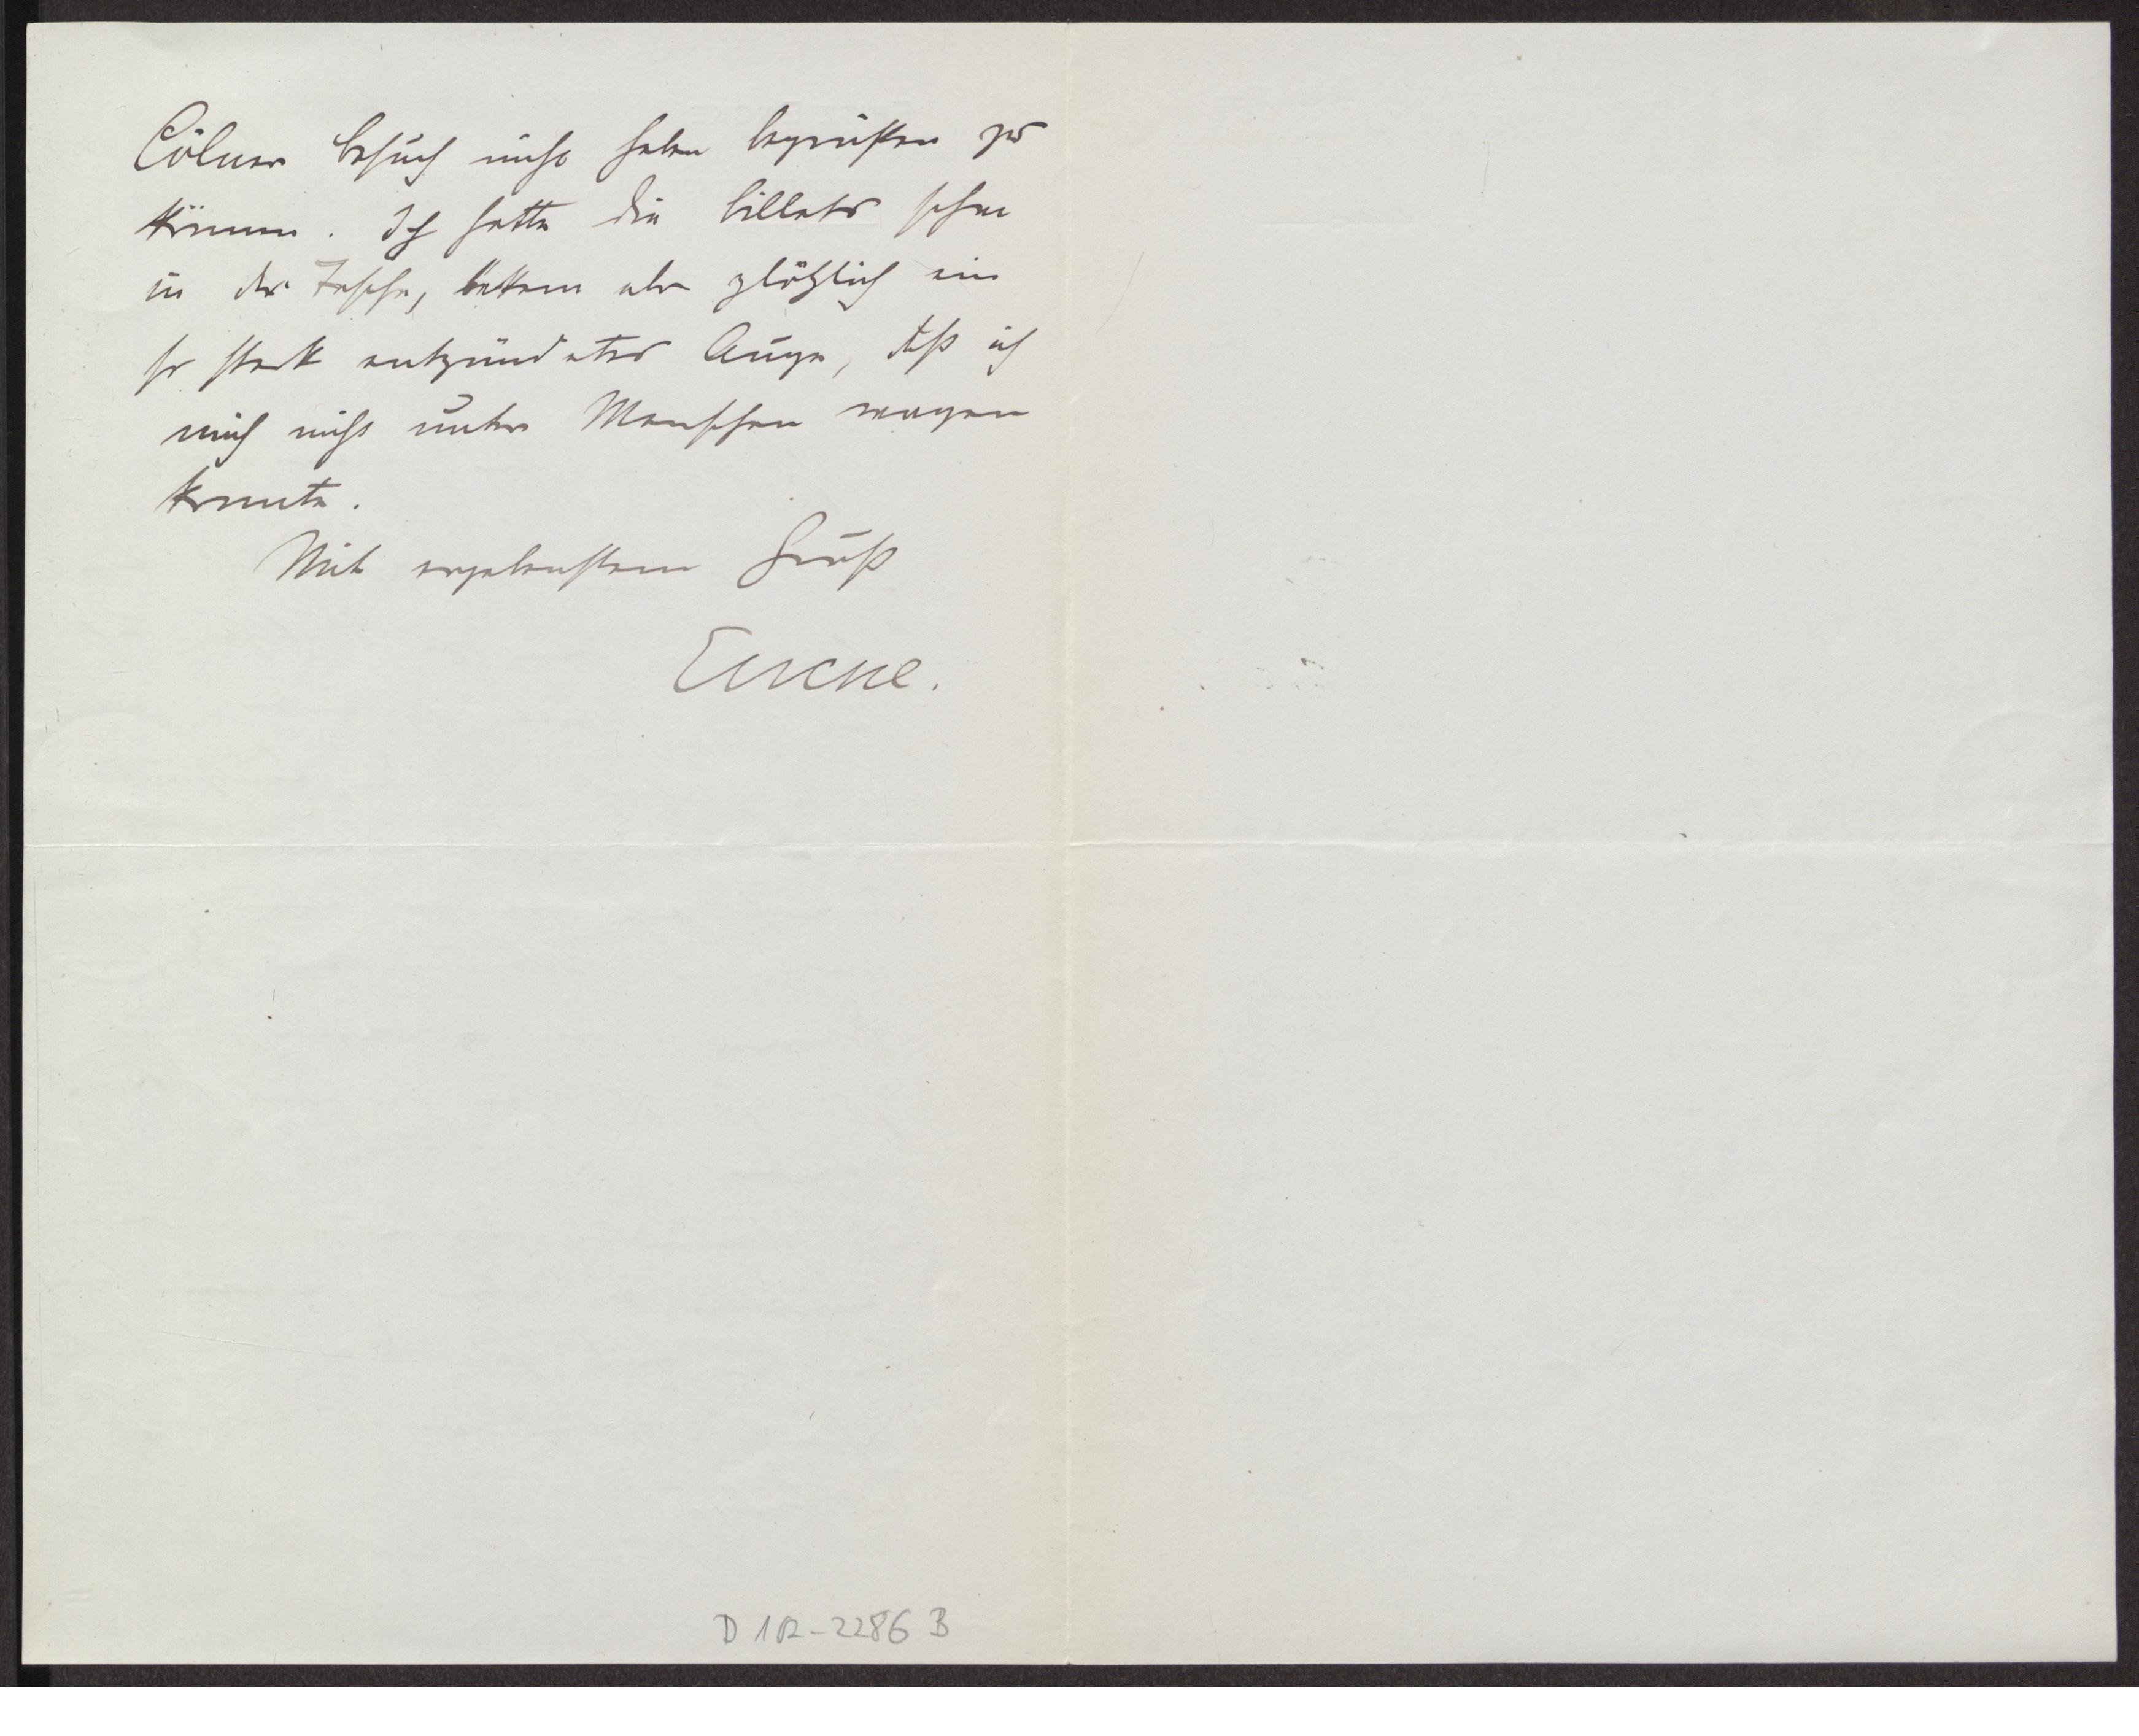 Cölner Besuch nicht haben begrüßen zu
können. Ich hatte die Billets schon
in der Tasche, bekam aber plötzlich ein
so stark entzündetes Auge, daß ich
mich nicht unter Menschen wagen
konnte.
Mit ergebenstem Gruß
Encke.
D 102-2286 B